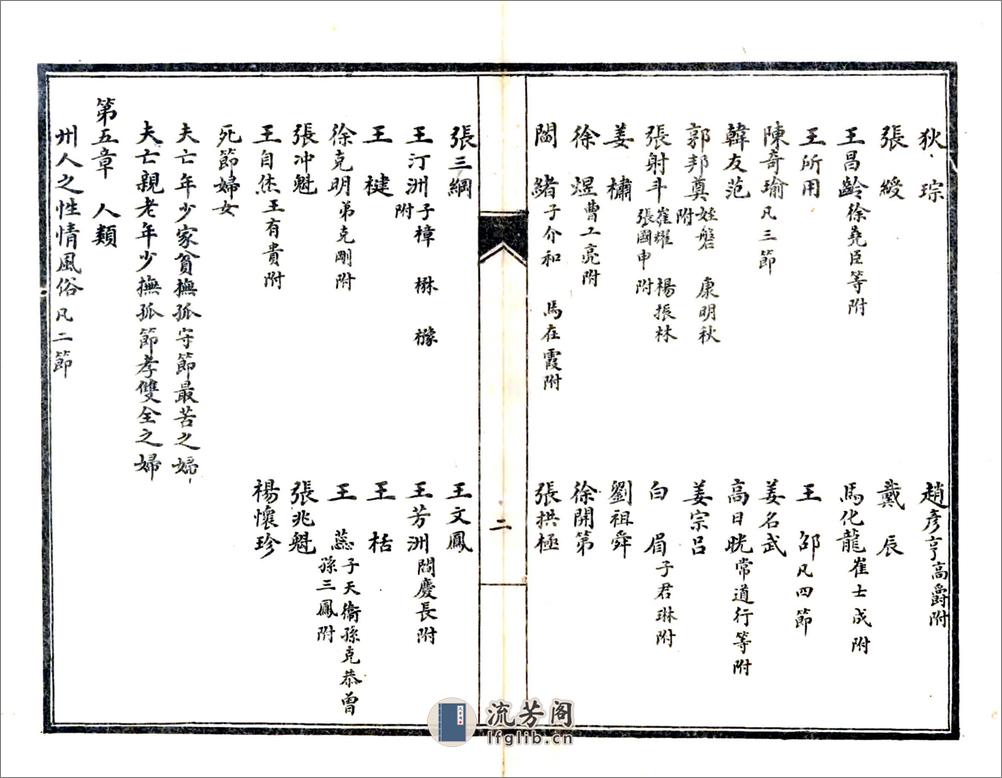 狄琮 趙彥亨高爵附
張綬 戴辰
王昌齡徐堯臣等附 馬化龍崔士成附
王所用 王邵凡四節
陳奇瑜凡三節 姜名武
韓友范 高日晄常道行等附
郭邦奠姪磐 康明秋附 姜宗呂
張射斗崔耀 楊振林 張國申附 白眉子君琳附
姜橚 劉祖舜
徐煜曹工亮附 徐開第
閻緒子介和 馬在霞附 張拱極
二
張三綱 王文鳳
王汀洲子樟 楙 櫞附 王芳洲閻慶長附
王楗 王枯
徐克明弟克剛附 王蕊子天衢孫克恭曾孫三鳳附
張冲魁 張兆魁
王自烋王有貴附 楊懷珍
死節婦女
夫亡年少家貧撫孤守節最苦之婦
夫亡親老年少撫孤節孝雙全之婦
第五章 人類
州人之性情風俗凡二節
流芳阁
lfglib.cn